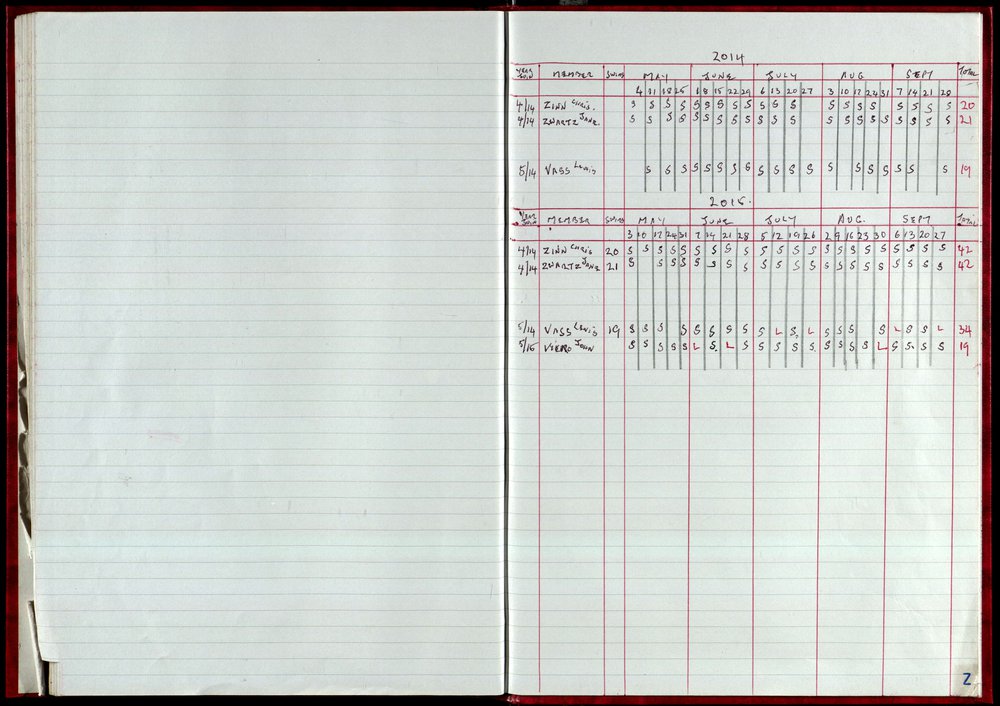 2014
YEAR JOIN MEMBER SWIMS MAY JUNE JULY AUG SEPT TOTAL
4 11 18 25 1 8 15 22 29 6 13 20 27 3 10 17 24 31 7 14 21 28
4/14 ZINN CHRIS. S S S S S S S S S S S S S S S S S S S S 20
4/14 ZWARTZ JANE. S S S S S S S S S S S S S S S S S S S S S 21
5/14 VASS LEWIS S S S S S S S S S S S S S S S S S S S 19
2015.
YEAR JOIN MEMBER SWIMS MAY JUNE JULY AUG. SEPT TOTAL
3 10 17 24 31 7 14 21 28 5 12 19 26 2 9 16 23 30 6 13 20 27
4/14 ZINN CHRIS 20 S S S S S S S S S S S S S S S S S S S S S S 42
4/14 ZWARTZ JANE 21 S S S S S S S S S S S S S S S S S S S S S 42
5/14 VASS LEWIS 19 S S S S S S S S S L S L S S S S L S S L 34
5/15 JOHN S S S S S L S. L S S S S S S S S S L S S S S 19
Z